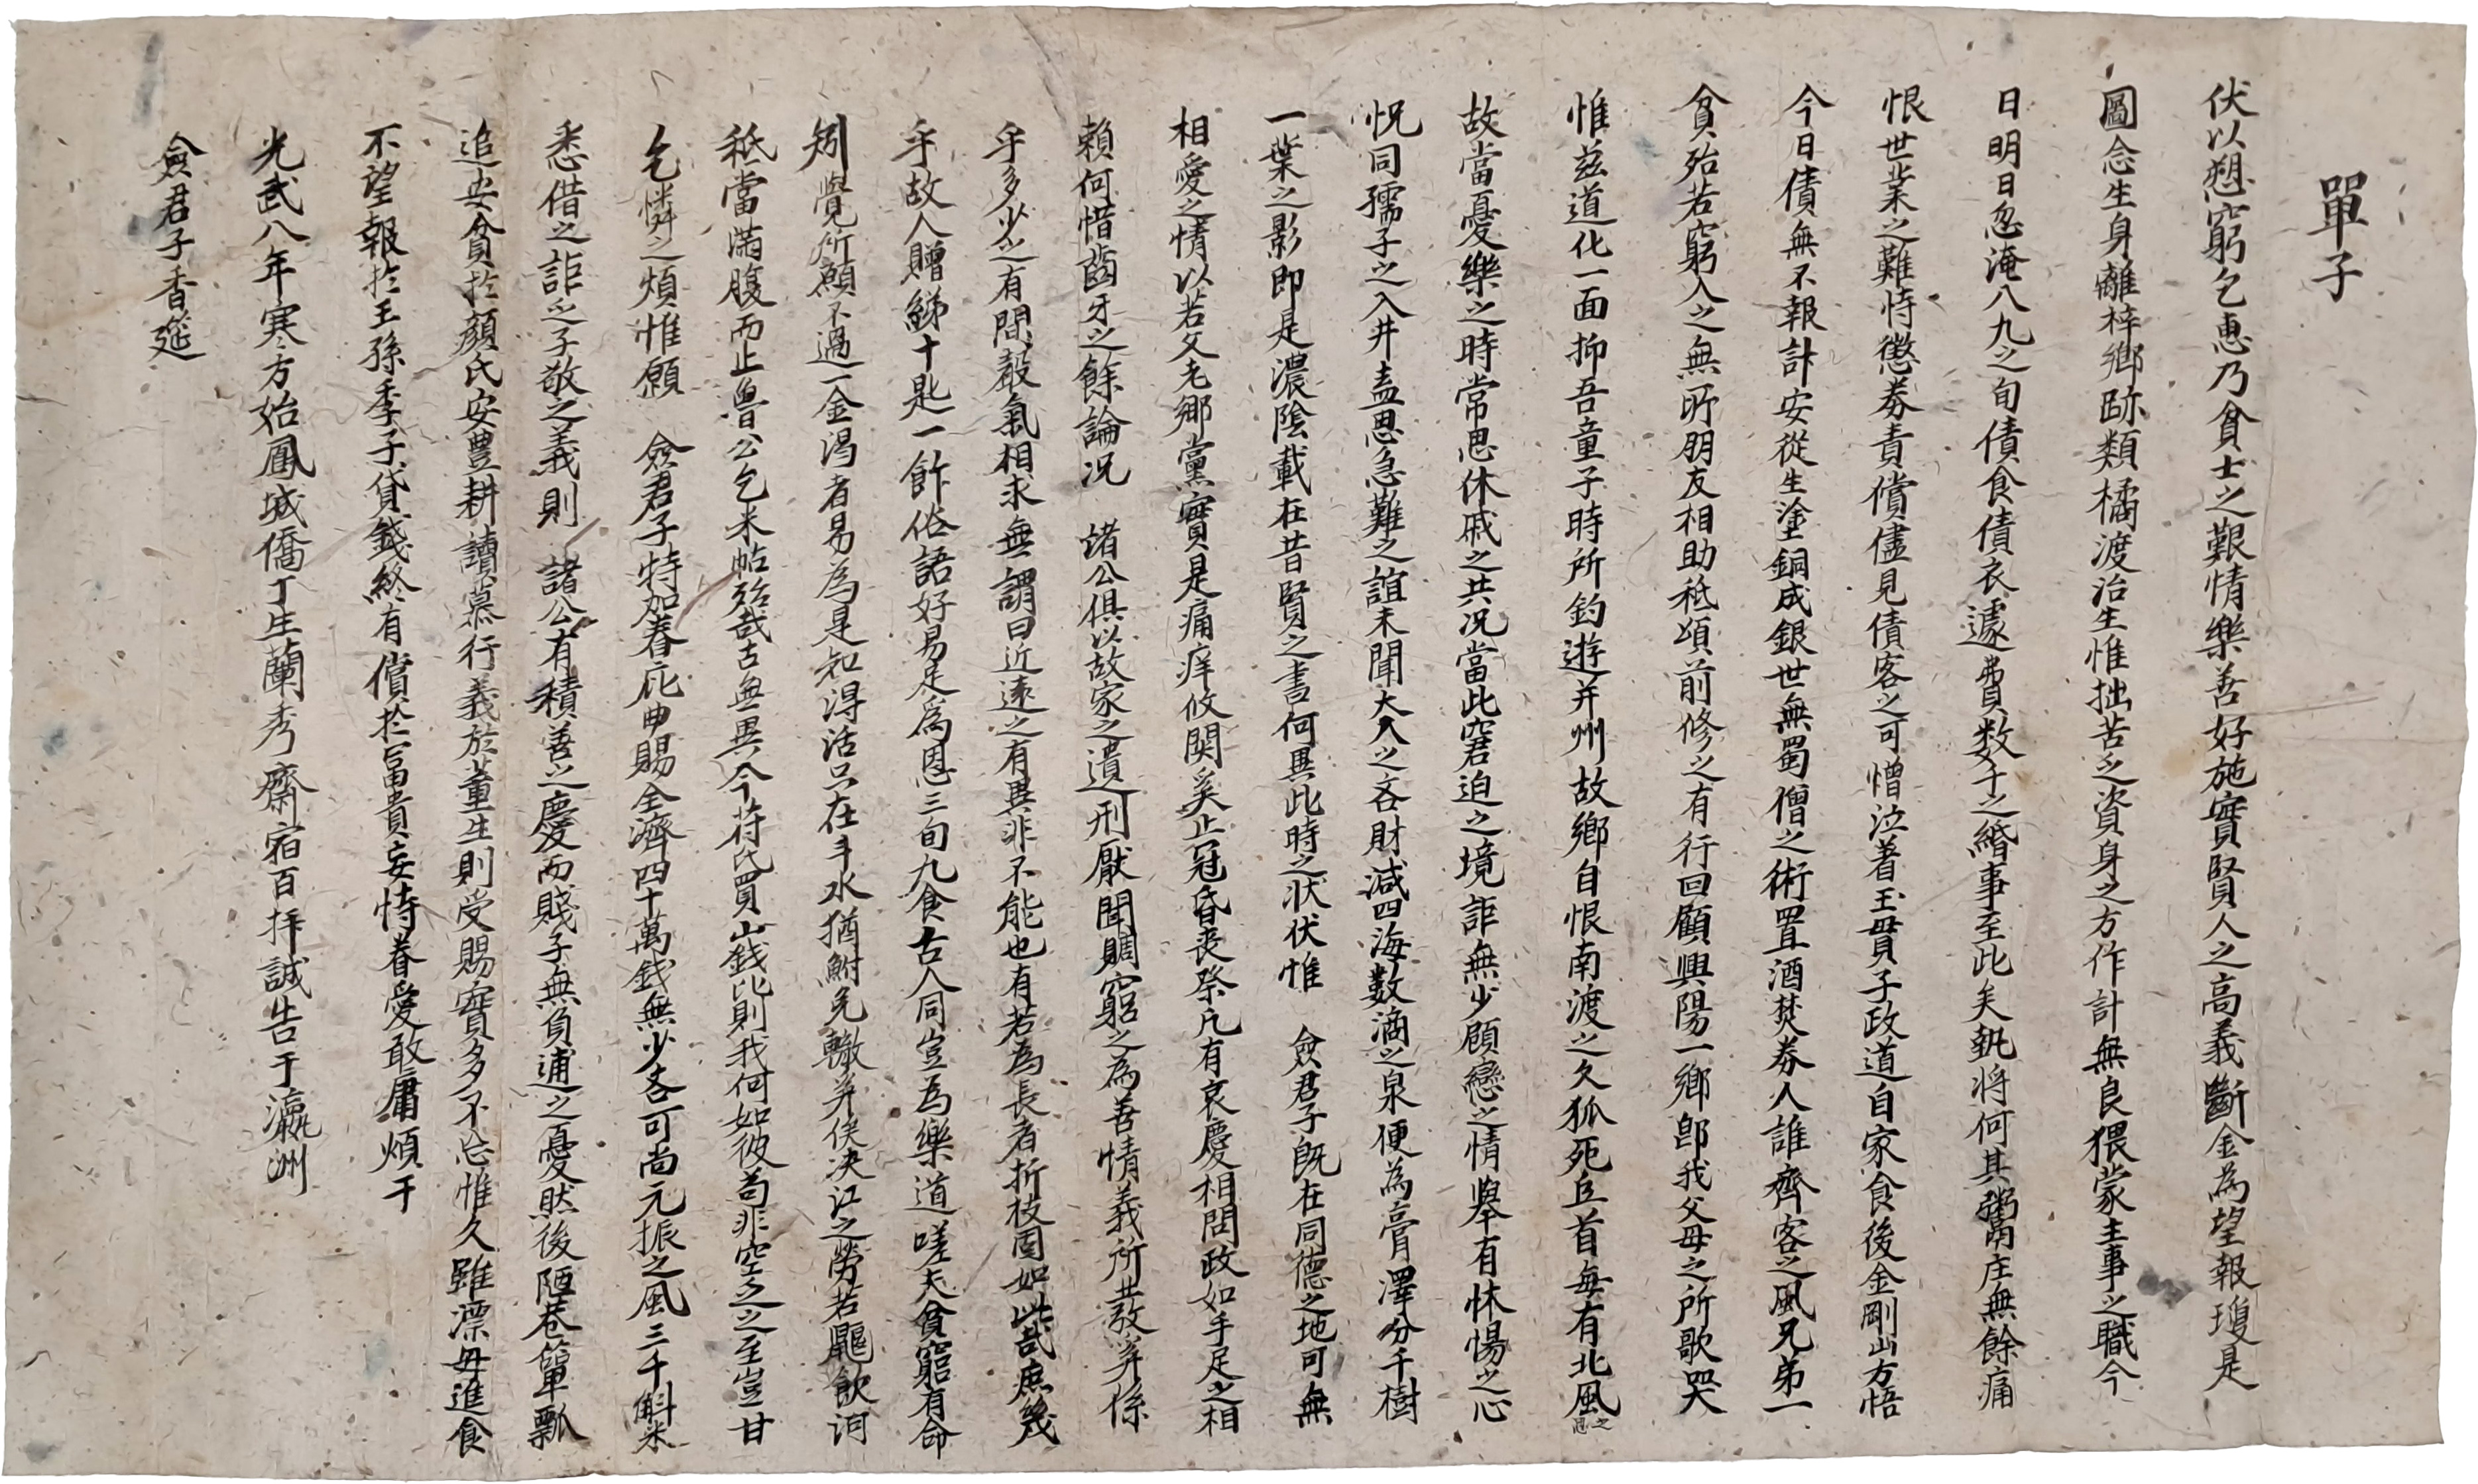 單子
伏以愬窮乞惠乃貧士之艱情樂善好施實賢人之高義斷金為望報瓊是
圖念生身離梓鄉跡類橘渡治生惟拙苦乏資身之方作計無良猥蒙主事之職今
日明日忽淹八九之旬債食債衣遽費数千之緡事至此矣執将何其粥庄無餘痛
恨世業之難恃懲券責償儘見債客之可憎泣著玉貫子政道自家食後金剛山方悟
今日債無不報計安從生塗銅成銀世無蜀僧之術置酒焚券人誰齊客之風兄弟一
貧殆若窮人之無所朋友相助秪頌前修之有行回顧興陽一鄉卽我父母之所歌哭
惟玆道化一面抑吾童子時所釣遊并州故鄉自恨南渡之久狐死丘首每有北風之思
故當憂樂之時常思休戚之共况當此窘迫之境詎無少顧戀之情擧有怵惕之心
怳同孺子之入井盖思急難之誼未聞大人之吝財減四海數滴之泉便為膏澤分千樹
一葉之影即是濃陰載在昔賢之書何異此時之状伏惟 僉君子旣在同德之地可無
相愛之情以若父老鄉黨實是痛痒攸関奚止冠昏丧祭凡有哀慶相問政如手足之相
賴何惜齒牙之餘論况 諸公俱以故家之遺刑厭聞賙窮之為善情義所共敎并係
乎多少之有間聲氣相求無謂曰近遠之有異非不能也有若為長者折枝固如此哉庶幾
乎故人贈綈十匙一飰俗語好易足為恩三旬九食古人同豈為樂道嗟夫貧窮有命
矧覺所願不過一金渴者易為是知得活只在斗水猶鮒免轍并俟决江之勞若鼴飮河
秪當滿腹而止魯公乞米帖殆哉古無異今苻氏買山錢比則我何如彼苟非空乏之至豈甘
乞憐之煩惟願 僉君子特加眷庇申賜全濟四十萬錢無少吝可尚元振之風三千斛米
悉借之詎乏子敬之義則 諸公有積善之慶而賤子無負逋之憂然後陋巷簞瓢
追安貧於顔氏安豊耕讀慕行義於董生則受賜實多不忘惟久雖漂毋進食
不望報於王孫季子貸錢終有償於富貴妄恃眷愛敢庸煩干
光武八年寒方始鳳城僑丁生蘭秀齋宿百拜誠告于瀛洲
僉君子香筵